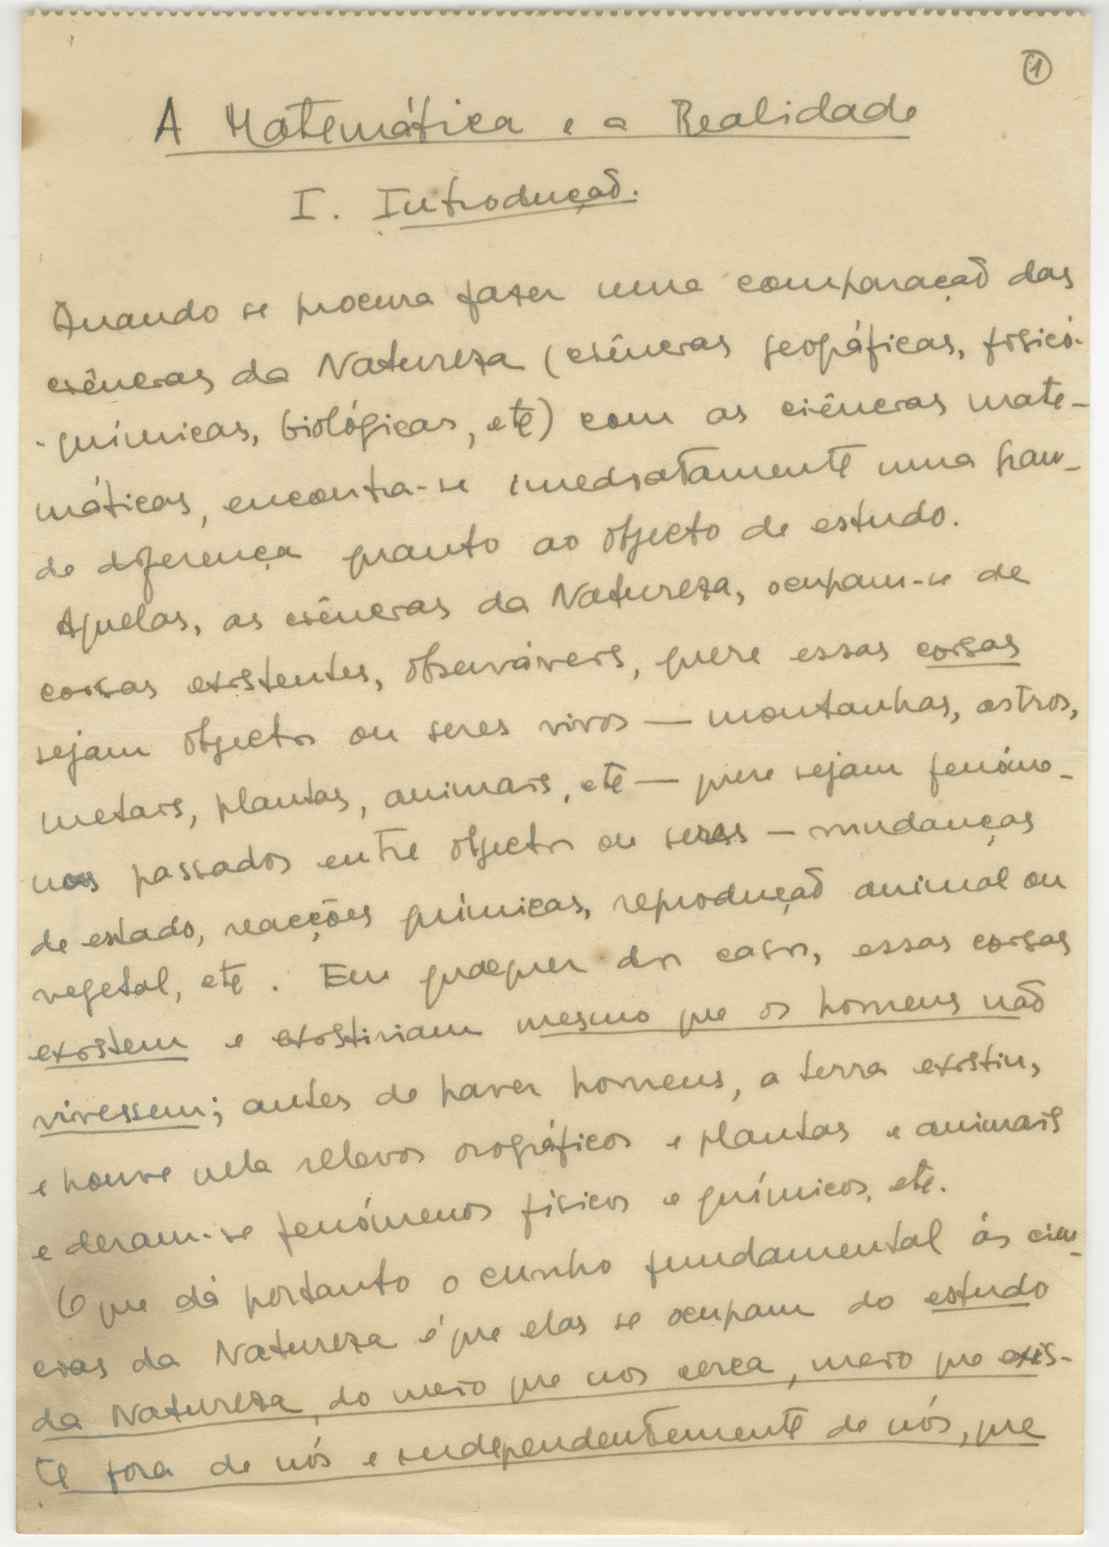 1
A Matemática e a Realidade
I. Introdução.
Quando se procura fazer uma comparação das
ciências da Natureza (ciências geográficas, físico-
-químicas, biológicas, etc) com as ciências mate-
máticas, encontra-se imediatamente uma gran-
de diferença quanto ao objecto de estudo.
Aquelas, as ciências da Natureza, ocupam-se de
coisas existentes, observáveis, quere essas coisas
sejam objectos ou seres vivos — montanhas, astros,
metais, plantas, animais, etc — quere sejam fenóme-
nos passados entre objectos ou seres — mudanças
de estado, reacções químicas, reprodução animal ou
vegetal, etc. Em qualquer dos casos, essas coisas
existem e existiriam mesmo que os homens não
vivessem; antes de haver homens, a terra existiu,
e houve nela relevos orográficos e plantas e animais
e deram-se fenómenos físicos e químicos, etc.
O que dá portanto o cunho fundamental às ciên-
cias da Natureza é que elas se ocupam do estudo
da Natureza, do meio que nos cerca, meio que exis-
te fora de nós e independentemente de nós, que